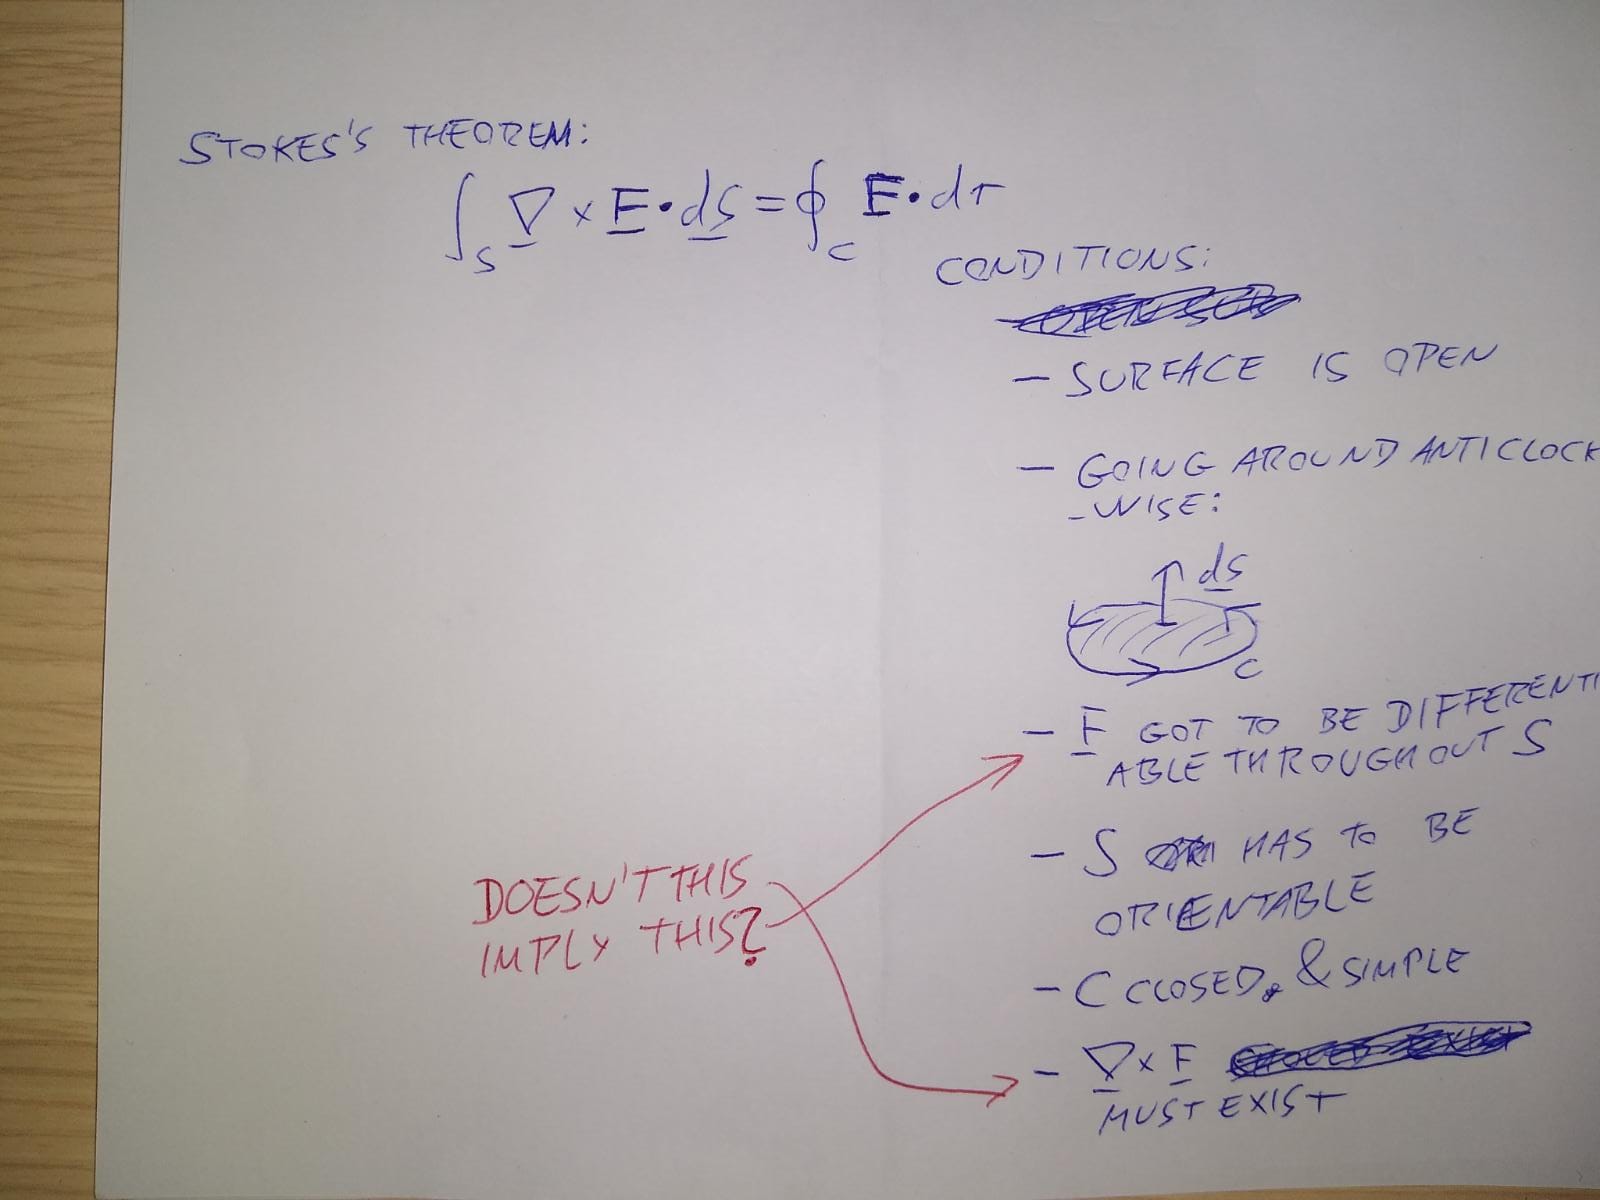 STOKES'S THEOREM:
∫_S ∇ × F • dS = ∮_C F • dr
CONDITIONS:
– SURFACE IS OPEN
– GOING AROUND ANTICLOCK
-WISE:
dS
C
– F GOT TO BE DIFFERENTI
ABLE THROUGHOUT S
– S HAS TO BE
ORIENTABLE
– C CLOSED & SIMPLE
– ∇ × F
MUST EXIST
DOESN'T THIS
IMPLY THIS?